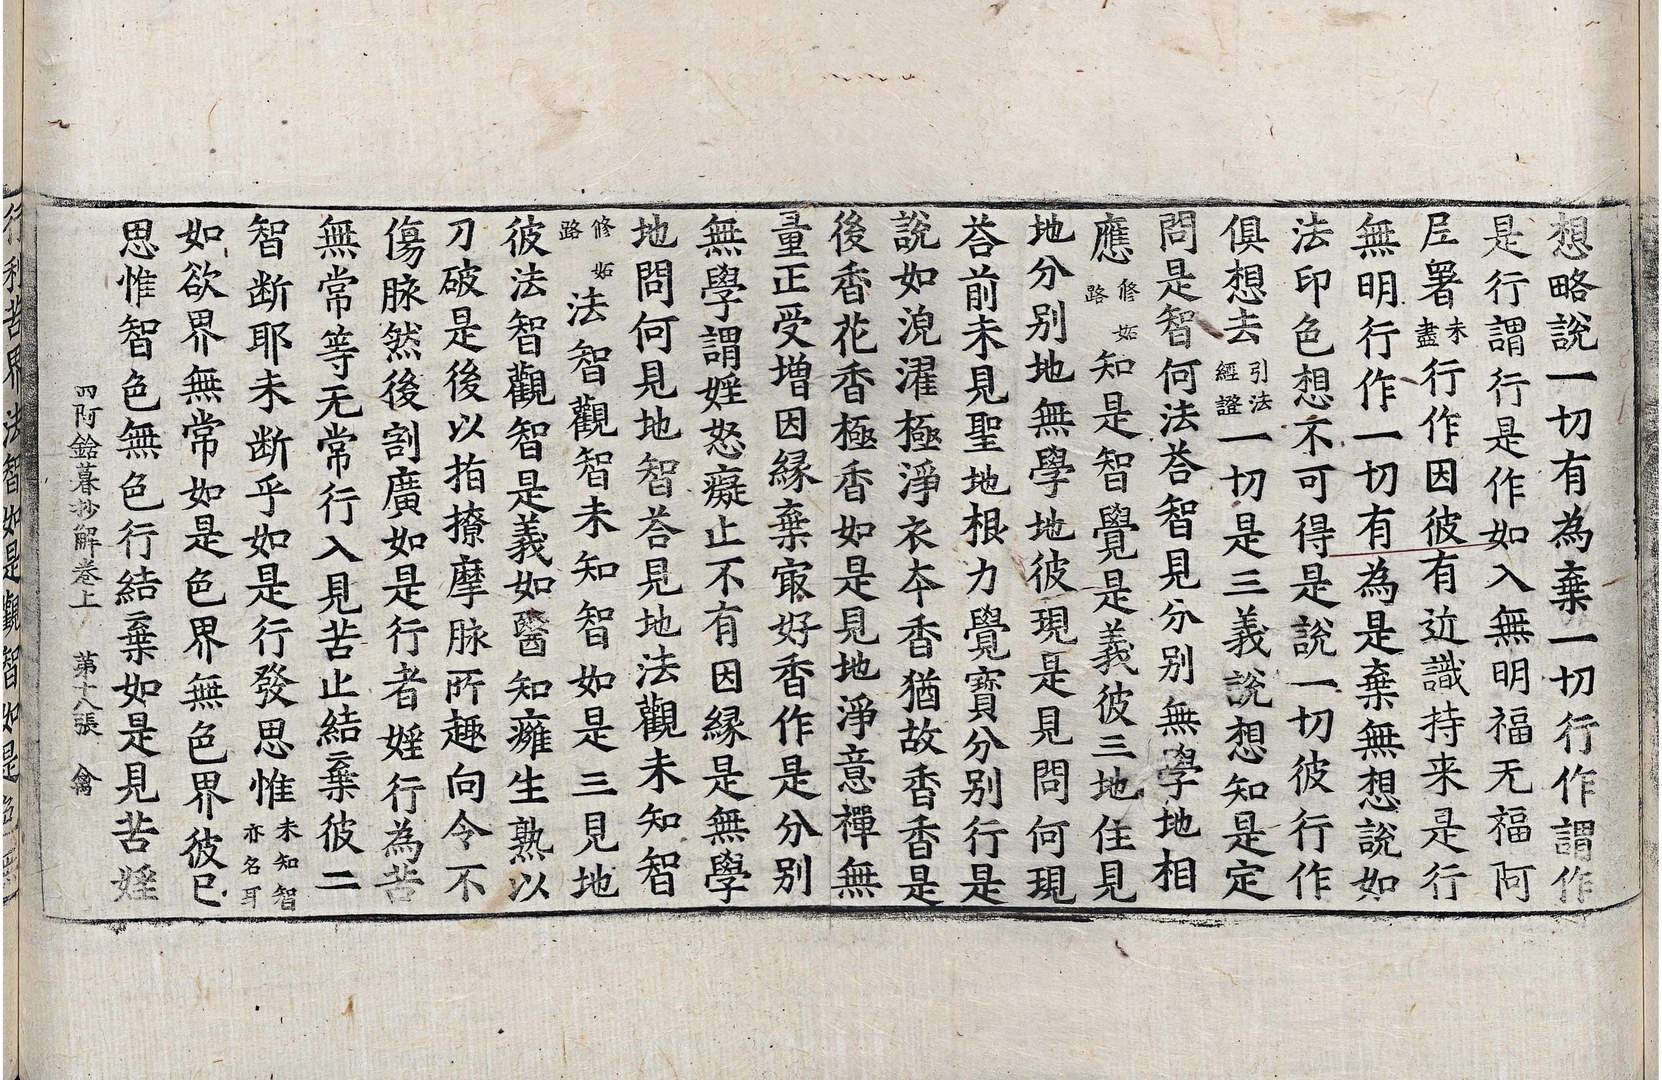 想略說一切有為棄一切行作謂作
是行謂行是作如入無明福无福阿
𡰱署未盡行作因彼有近識持来是行
無明行作一切有為是棄無想說如
法印色想不可得是說一切彼行作
俱想去引法經證一切是三義說想知是定
問是智何法荅智見分别無學地相
應修妬路知是智覺是義彼三地住見
地分别地無學地彼現是見問何現
荅前未見聖地根力覺寶分别行是
說如浼濯極淨衣夲香猶故香香是
後香花香極香如是見地淨意禪無
量正受增因縁棄㝡好香作是分别
無學謂婬怒癡止不有因縁是無學
地問何見地智荅見地法觀未知智
修妬路法智觀智未知智如是三見地
彼法智觀智是義如醫知癰生熟以
刀破是後以指撩摩脉所趣向令不
傷脉然後割廣如是行者婬行為苦
無常等无常行入見苦止結棄彼二
智断耶未断乎如是行發思惟未知智亦名耳
如欲界無常如是色界無色界彼已
思惟智色無色行結棄如是見苦婬
四阿鋡暮抄解卷上 第十八張 禽
行利苦界法智如是觀智如是色